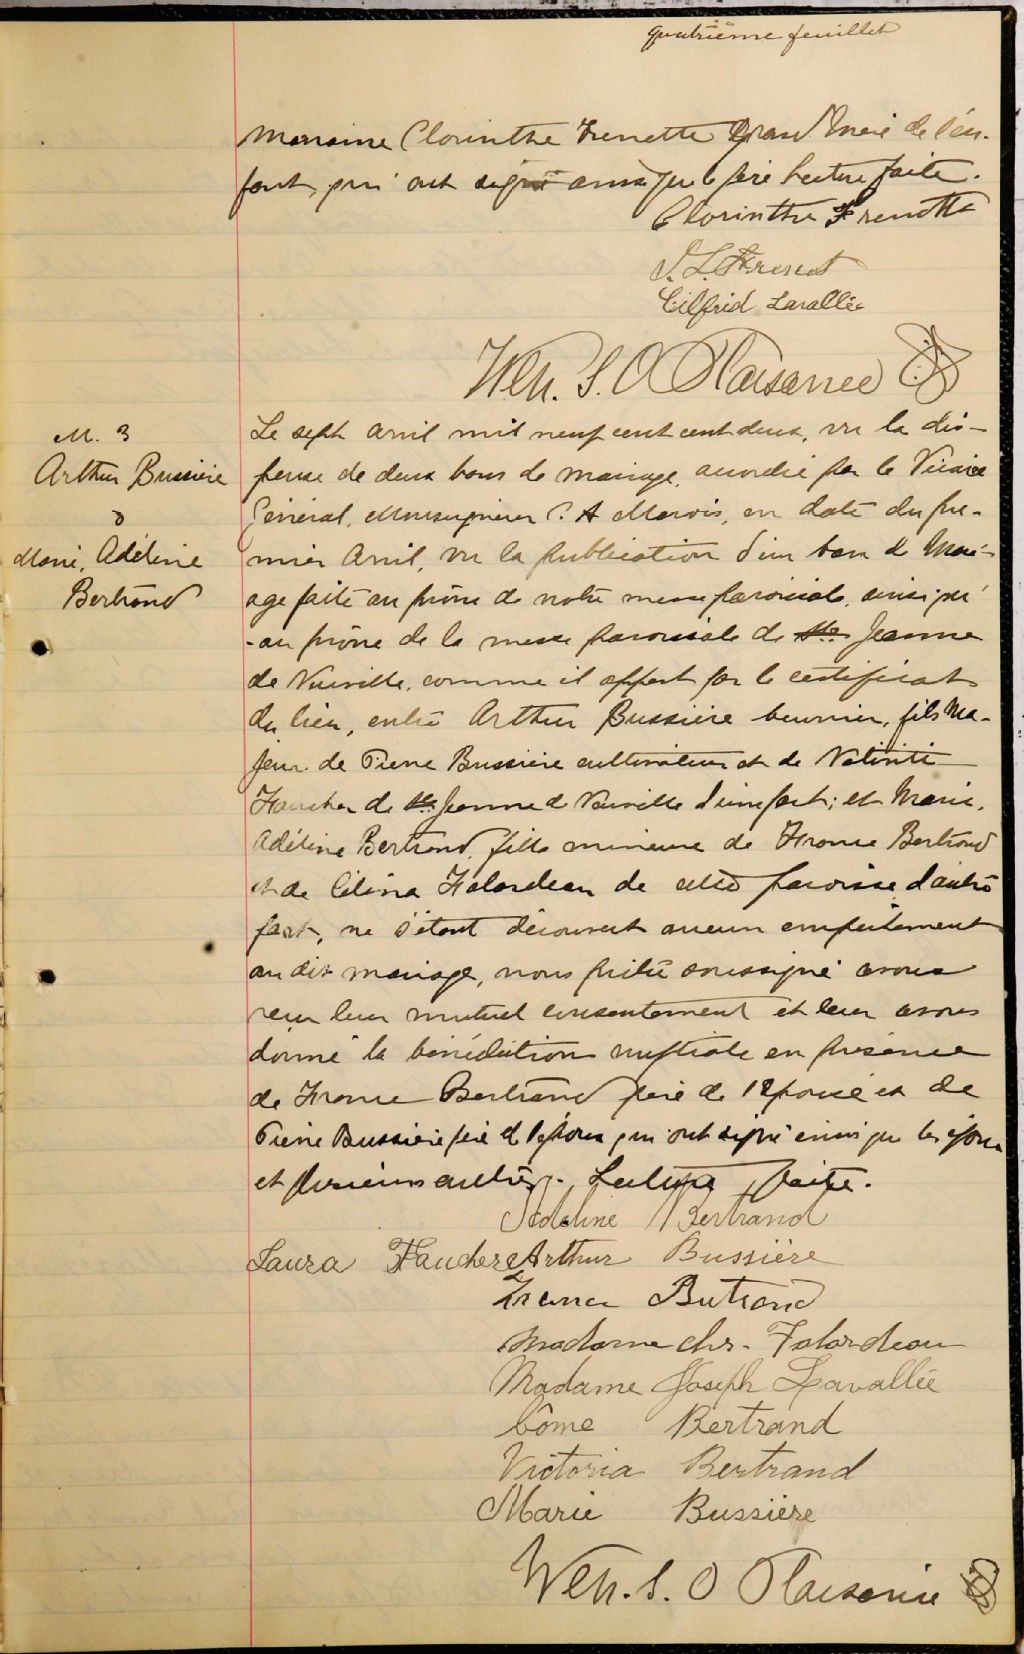 quatrième feuillet
Marraine Clorinthe Frenette Grand Mère de l'en-
fant, qui ont signé ainsi que le père Lecture faite.
Clorinthe Frenette
J. L. Frenet
Cilfrid Lavallée
Wen. S. O Plaisance
M. 3
Arthur Bussière
&
Marie, Adéline
Bertrand
Le sept Avril mil neuf cent cent deux, vu la dis-
pense de deux bans de mariage, accordée par le Vicaire
Général, Monseigneur C. A Marois, en date du pre-
mier Avril, vu la publication d'un ban de Mari-
age faite au prône de notre messe paroissiale, ainsi qu'
-au prône de la messe paroissiale de Ste Jeanne
de Neuville, comme il appert par le certificat
du lieu, entre Arthur Bussière beurrier, fils Ma-
jeur de Pierre Bussière cultivateur et de Nativité
Faucher de Ste Jeanne de Neuville d'une part; et Marie,
Adéline Bertrand, fille mineure de Bertrand
et de Célina Falardeau de cette paroisse d'autre
part, ne s'étant découvert aucun empêchement
au dit mariage, nous prêtre soussigné avons
reçu leur mutuel consentement et leur avons
donné la bénédiction nuptiale en présence
de Bertrand père de l'épouse et de
Pierre Bussière père de l'époux qui ont signé ainsi que les époux
et plusieurs autres. Lecture faite.
Adeline Bertrand
Laura Fauchere Arthur Bussière
Bertrand
Madame Chs. Falardeau
Madame Joseph Lavallée
Côme Bertrand
Victoria Bertrand
Marie Bussière
Wen. S. O Plaisance